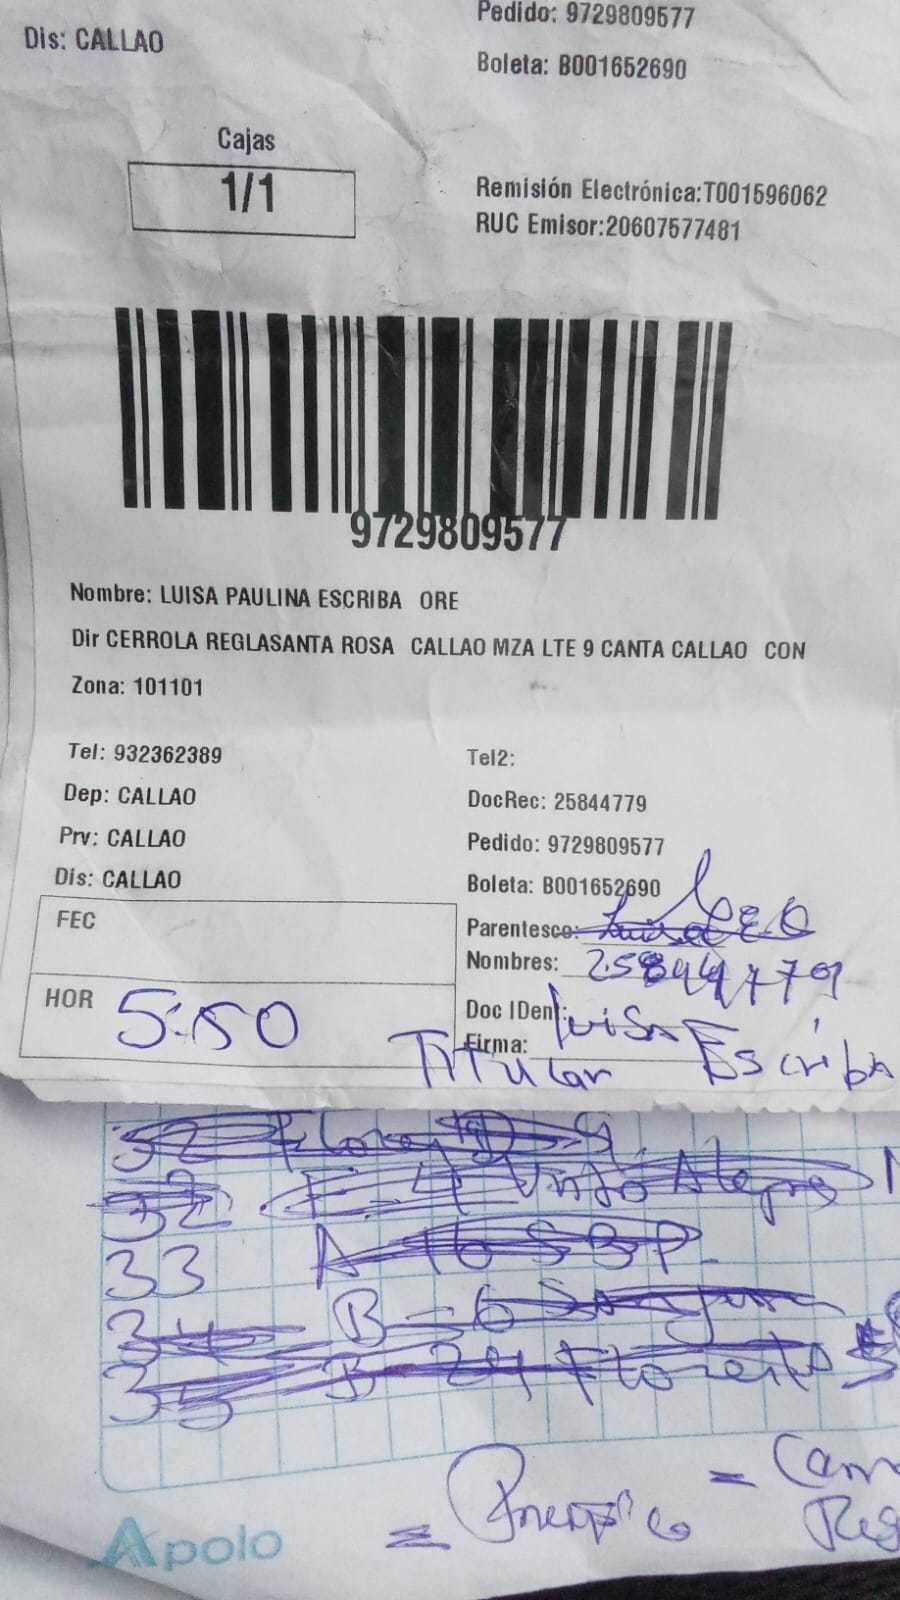 Pedido: 9729809577
Dis: CALLAO
Boleta: B001652690
Cajas
1/1
Remisión Electrónica:T001596062
RUC Emisor:20607577481
9729809577
Nombre: LUISA PAULINA ESCRIBA ORE
Dir CERROLA REGLASANTA ROSA CALLAO MZA LTE 9 CANTA CALLAO CON
Zona: 101101
Tel: 932362389
Tel2:
Dep: CALLAO
DocRec: 25844779
Prv: CALLAO
Pedido: 9729809577
Dis: CALLAO
Boleta: B001652690
FEC
Parentesco:
Nombres: 25844779
HOR 5:50
Doc IDent: Luisa Escriba
Firma:
Titular
32
32 E-4 Alegre
33 A-16 SBP.
34 B-6
35 B-24
Apolo